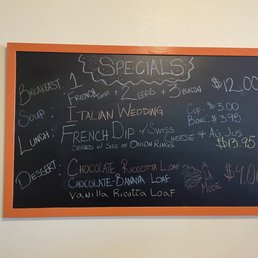 SPECIALS
BREAKFAST: 1 FRENCH TOAST + 2 EGGS + 3 BACON $12.00
SOUP: ITALIAN WEDDING CUP: $3.00
BOWL: $3.95
LUNCH: FRENCH DIP w/ SWISS CHEESE + AU JUS
SERVED W/ SIDE OF ONION RINGS $13.95
DESSERT: CHOCOLATE RICCOTTA LOAF
CHOCOLATE-BANANA LOAF
Vanilla Ricotta LOAF
A LA MODE